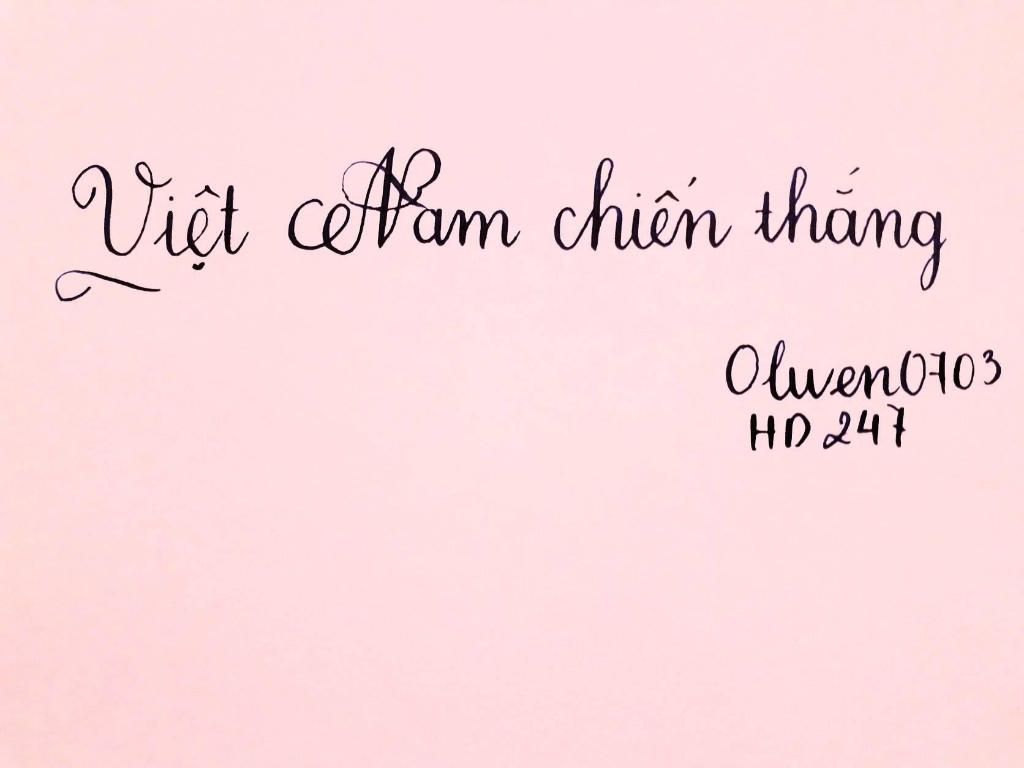 Việt Nam chiến thắng
Olwen0703
HD 247